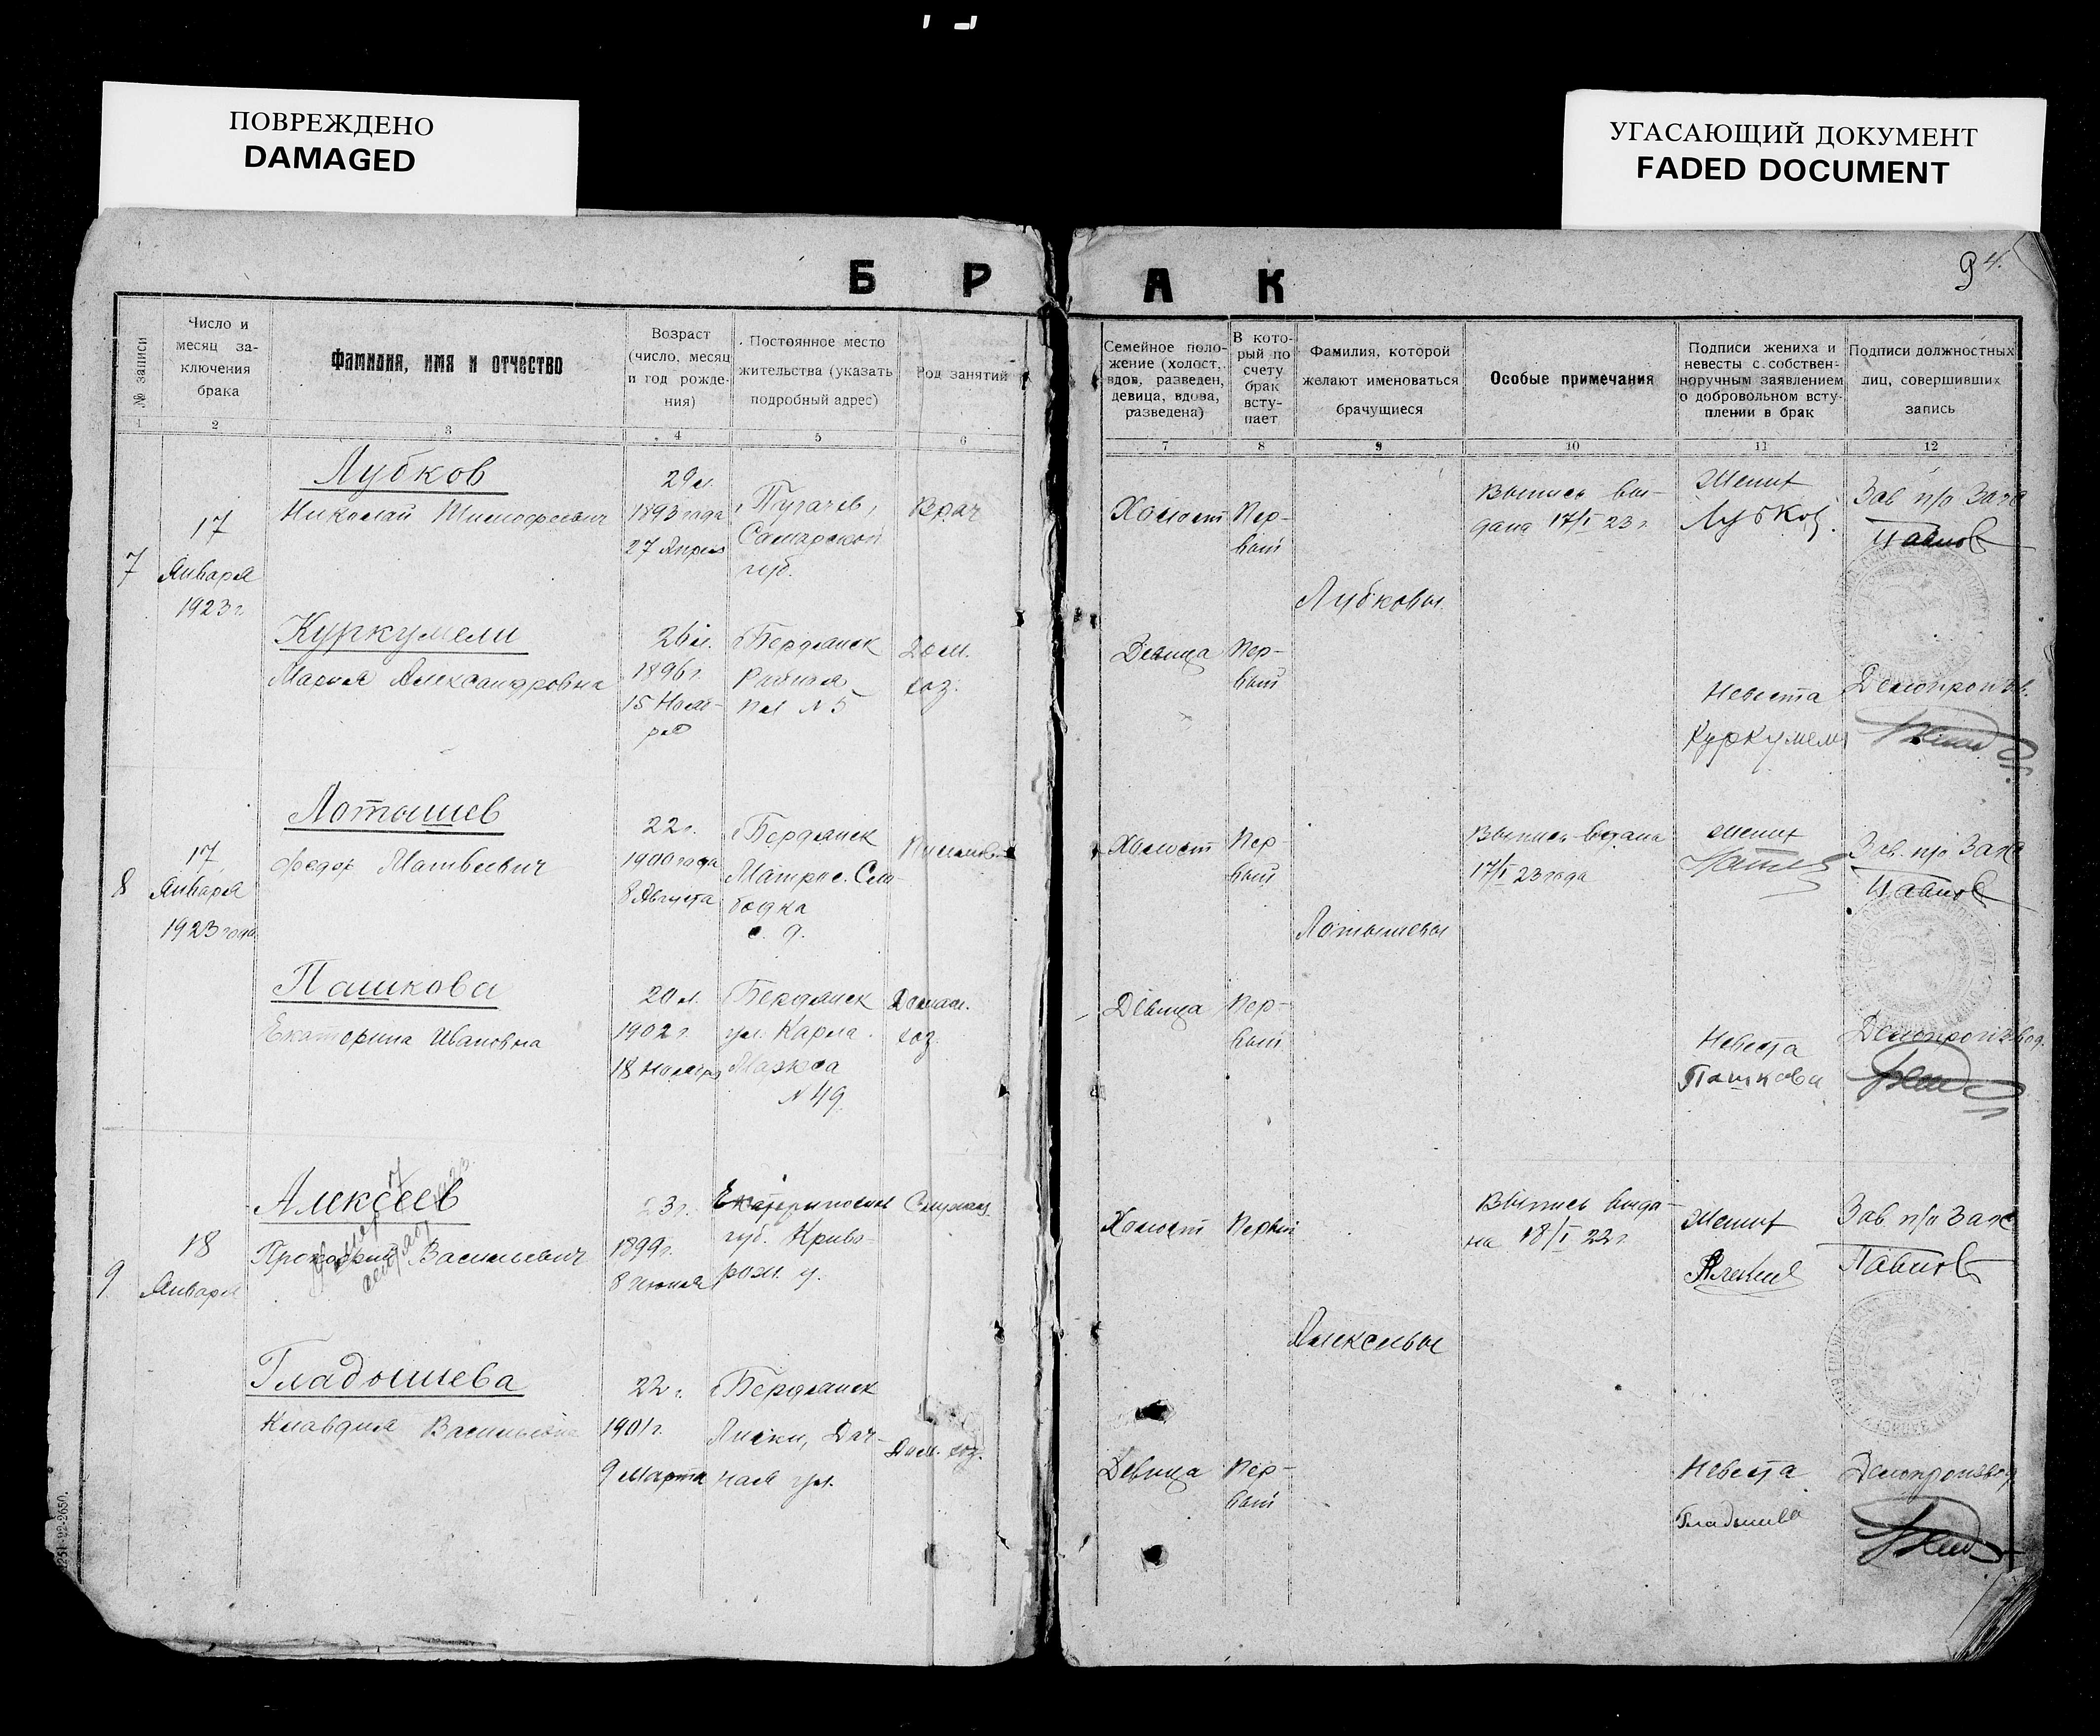 ПОВРЕЖДЕНО
DAMAGED
УГАСАЮЩИЙ ДОКУМЕНТ
FADED DOCUMENT
94.
Б Р А К
№ записи
Число и
месяц за-
ключения
брака
Фамилия, имя и отчество
Возраст
(число, месяц
и год рожде-
ния)
Постоянное место
жительства (указать
подробный адрес)
Род занятий
Семейное поло-
жение (холост,
вдов, разведен,
девица, вдова,
разведена)
В кото-
рый по
счету
брак
всту-
пает
Фамилия, которой
желают именоваться
брачущиеся
Особые примечания
Подписи жениха и
невесты с собствен-
норучным заявлением
о добровольном всту-
плении в брак
Подписи должностных
лиц, совершивших
запись
1 2 3 4 5 6 7 8 9 10 11 12
7
17
Января
1923 г
Лубков
Николай Тимофеевич
29 л.
1893 года
27 Апреля
г Пугачев,
Самарской
губ.
Врач
Холост
Пер-
вый
Выпись вы-
дана 17/I 23 г
Жених
Лубков.
Зав. п/о Загс
Павлов
Лубковы
Куркумели
Мария Александровна
26 л.
1896 г
15 Нояб-
ря
г Бердянск
пл № 5
Дом.
хоз.
Девица
Пер-
вый
Невеста
Куркумели
Делопроизв.
8
17
Января
1923 года
Лотышев
Федор Матвеевич
22 г.
1900 года
8 Августа
г Бердянск
Матрос. Сло-
бодка
с. д.
Холост
Пер
вый
Выпись выдана
17/I 23 года
Жених
Зав. п/о Загс
Павлов
Лотышевы
Пашкова
Екатерина Ивановна
20 л.
1902 г
18 Ноября
Бердянск
ул. Карла
Маркса
№ 49
Домаш.
хоз.
Девица
Пер-
вый
Невеста
Пашкова
Делопроизвод.
9
18
Января
Алексеев
Прокофий Васильевич
23 г.
1899 г.
8 Июля
Екатериносл
губ. Криво-
рож. у.
Служащ.
Холост
Первый
Выпись выда-
на 18/I 22 г.
Жених
Алексеев
Зав. п/о Загс
Павлов
Алексеевы
Гладышева
Клавдия Васильевна
22 г.
1901 г.
9 Марта
г Бердянск
Лиски, Дач-
ная ул.
Дом. хоз.
Девица
Пер-
вый
Невеста
Гладышева
Делопроизвод